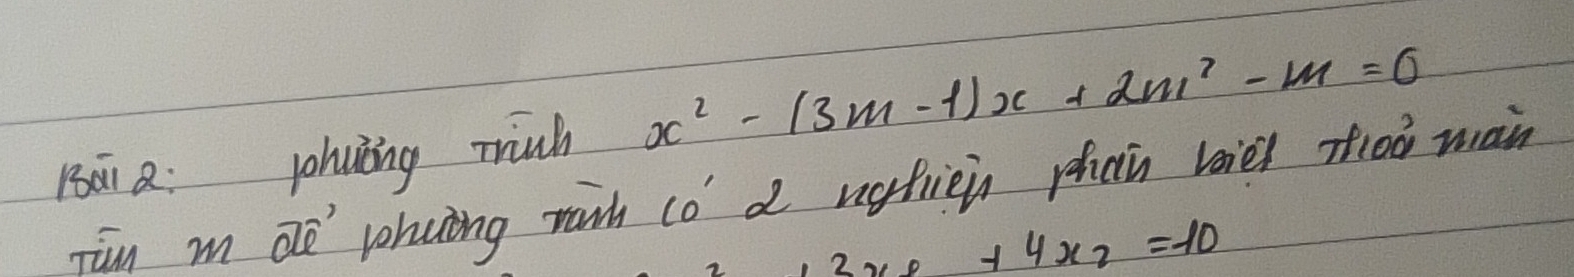 Bài 2: phương trình x² - (3m - 1)x + 2m² - m = 0
Tìm m để phương trình có 2 nghiệm phân biệt thoả mãn
+ 3x₁ + 4x₂ = 10